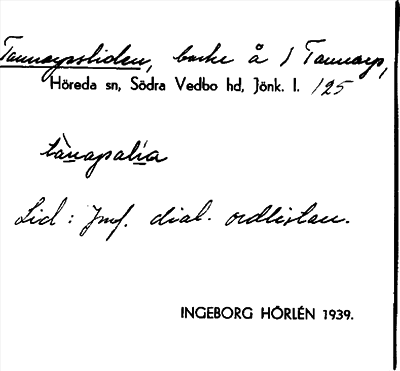 Tannarpsliden, backe å 1 Tannarp,
Höreda sn, Södra Vedbo hd, Jönk. l. 125
tànapalia
Lid: Jmf. dial. ordlistan.
INGEBORG HÖRLÉN 1939.